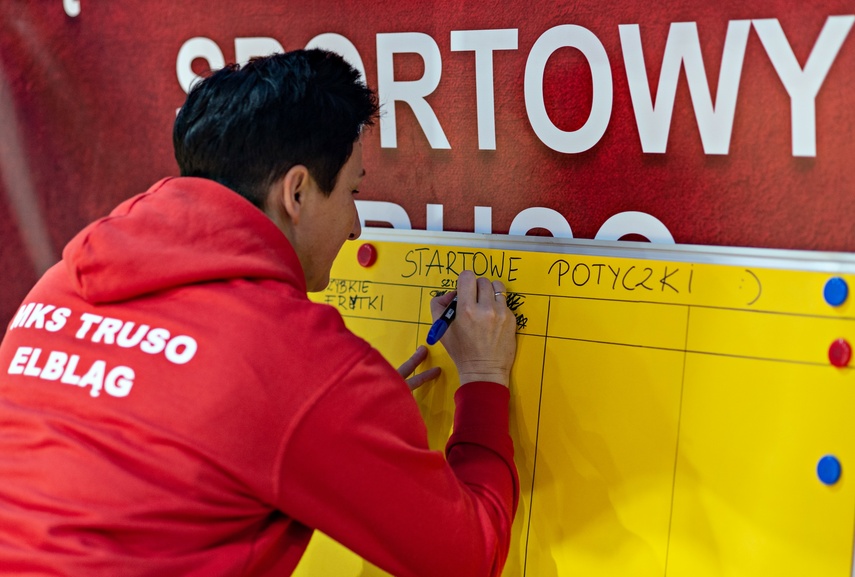 SPORTOWY
TRUSO
MKS TRUSO
ELBLĄG
STARTOWE POTYCZKI :)
SZYBKIE
FRYTKI